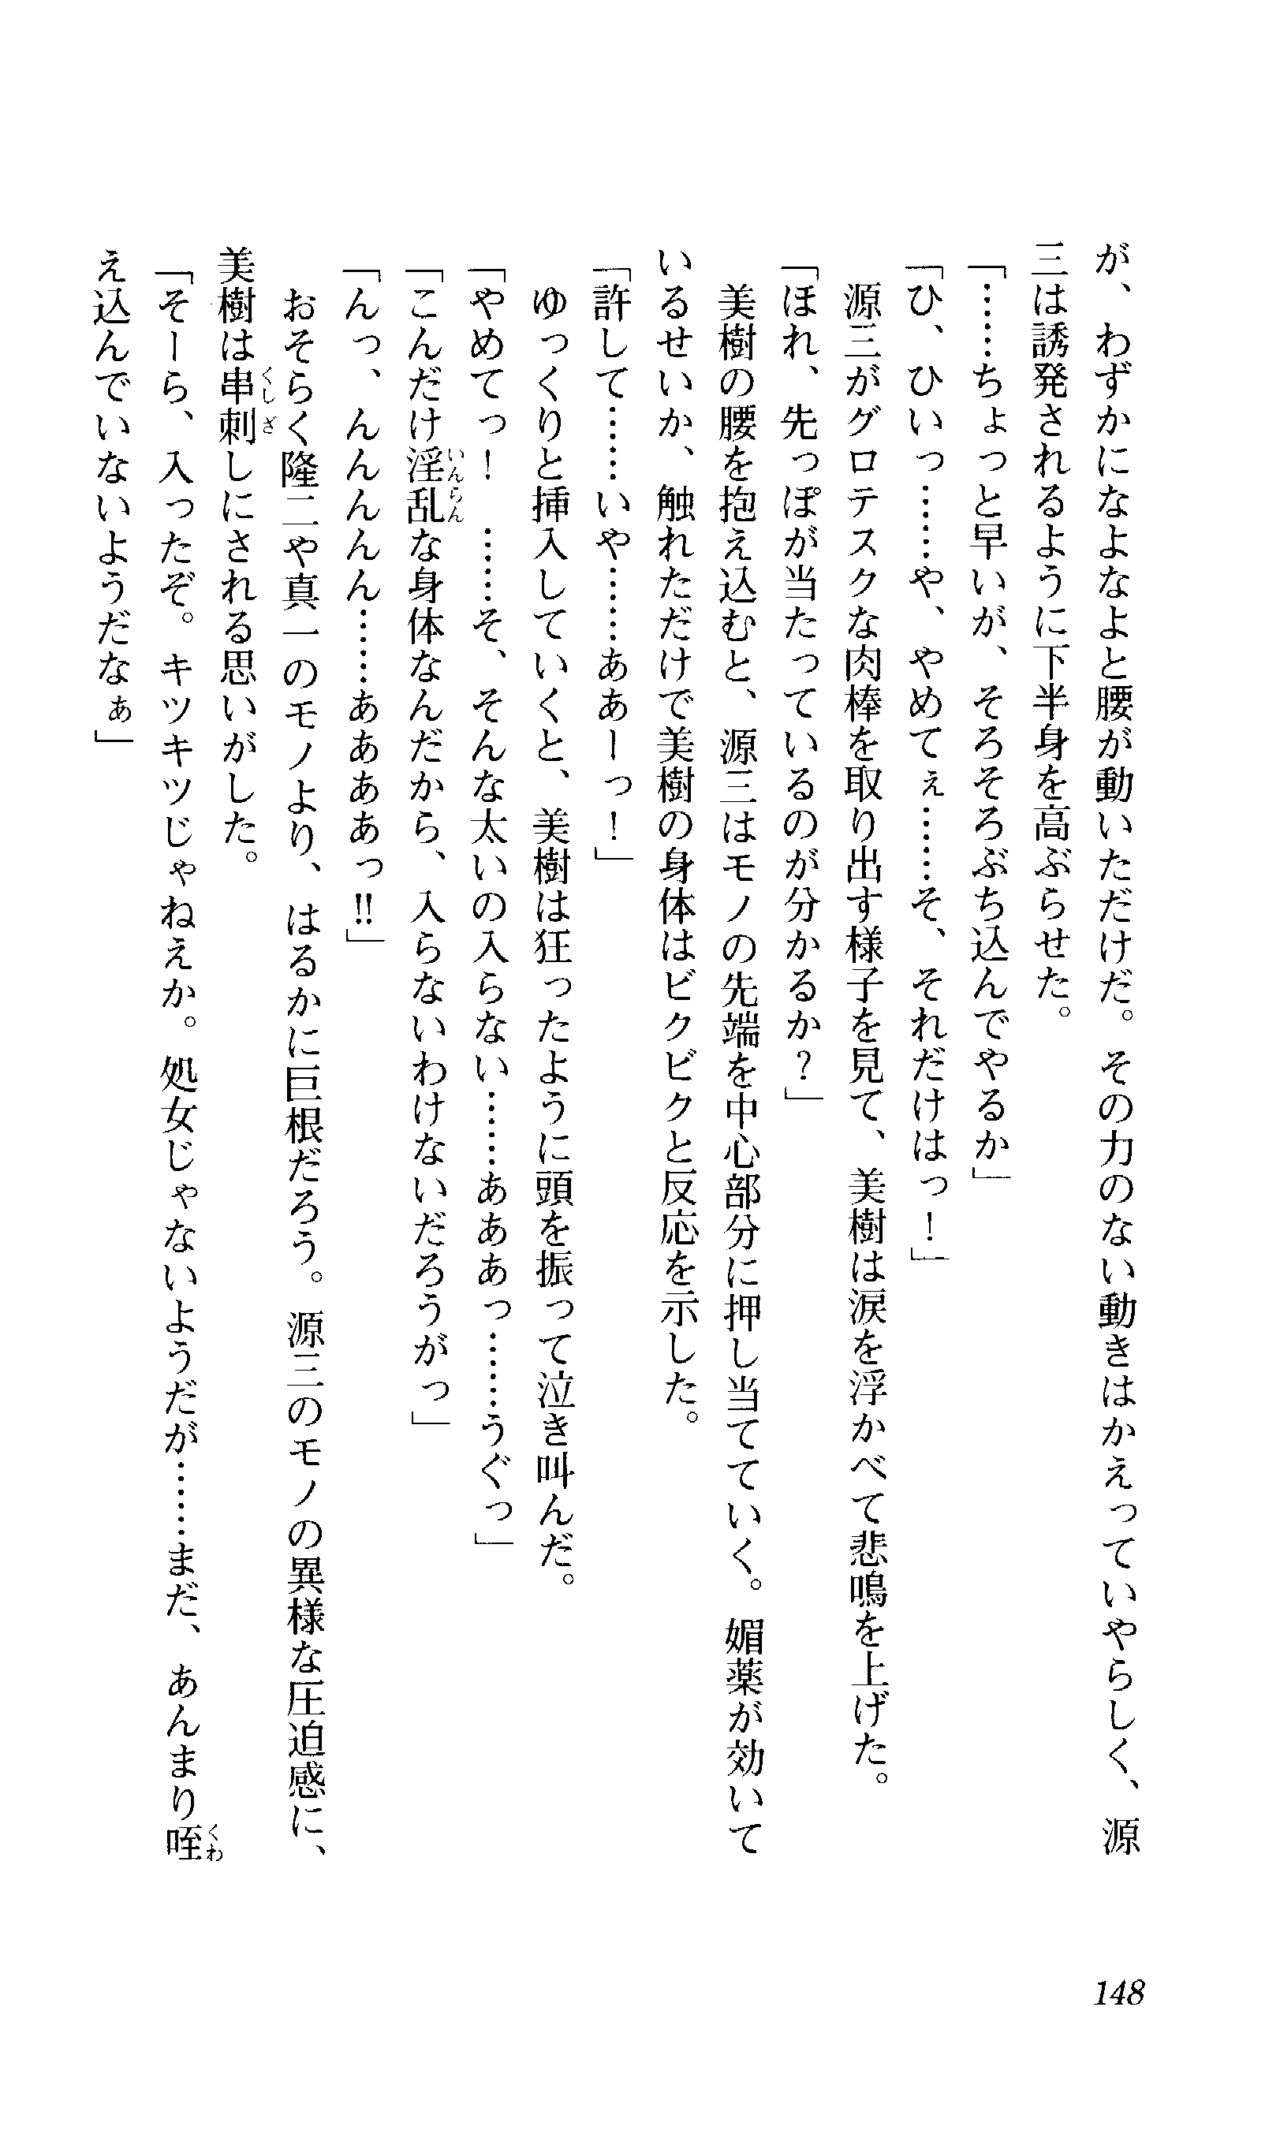 が、わずかになよなよと腰が動いただけだ。その力のない動きはかえっていやらしく、源
三は誘発されるように下半身を高ぶらせた。
「……ちょっと早いが、そろそろぶち込んでやるか」
「ひ、ひいっ……や、やめてぇ……そ、それだけはっ！」
　源三がグロテスクな肉棒を取り出す様子を見て、美樹は涙を浮かべて悲鳴を上げた。
「ほれ、先っぽが当たっているのが分かるか？」
　美樹の腰を抱え込むと、源三はモノの先端を中心部分に押し当てていく。媚薬が効いて
いるせいか、触れただけで美樹の身体はビクビクと反応を示した。
「許して……いや……ああーっ！」
　ゆっくりと挿入していくと、美樹は狂ったように頭を振って泣き叫んだ。
「やめてっ！　……そ、そんな太いの入らない……あああっ……うぐっ」
「こんだけ淫乱な身体なんだから、入らないわけないだろうがっ」
「んっ、んんんん……ああああっ‼」
　おそらく隆二や真一のモノより、はるかに巨根だろう。源三のモノの異様な圧迫感に、
美樹は串刺しにされる思いがした。
「そーら、入ったぞ。キツキツじゃねえか。処女じゃないようだが……まだ、あんまり咥
え込んでいないようだなぁ」
148